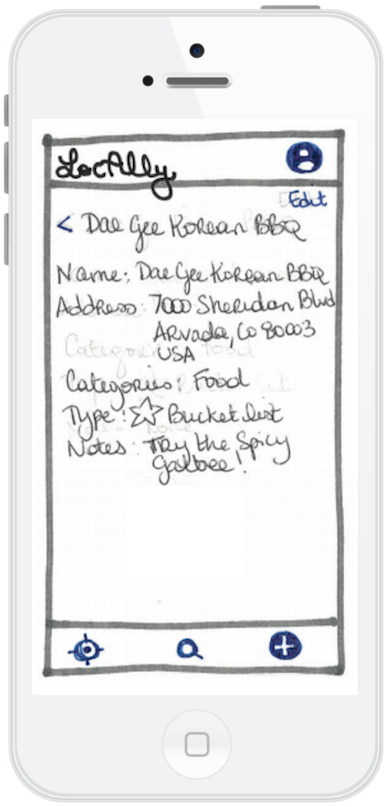 LocAlly
Edit
< Dae Gee Korean BBQ
Name: Dae Gee Korean BBQ
Address: 7000 Sheridan Blvd
Arvada, Co 80003
USA
Categories: Food
Type: ☆ Bucket list
Notes: Try the Spicy
Galbee!